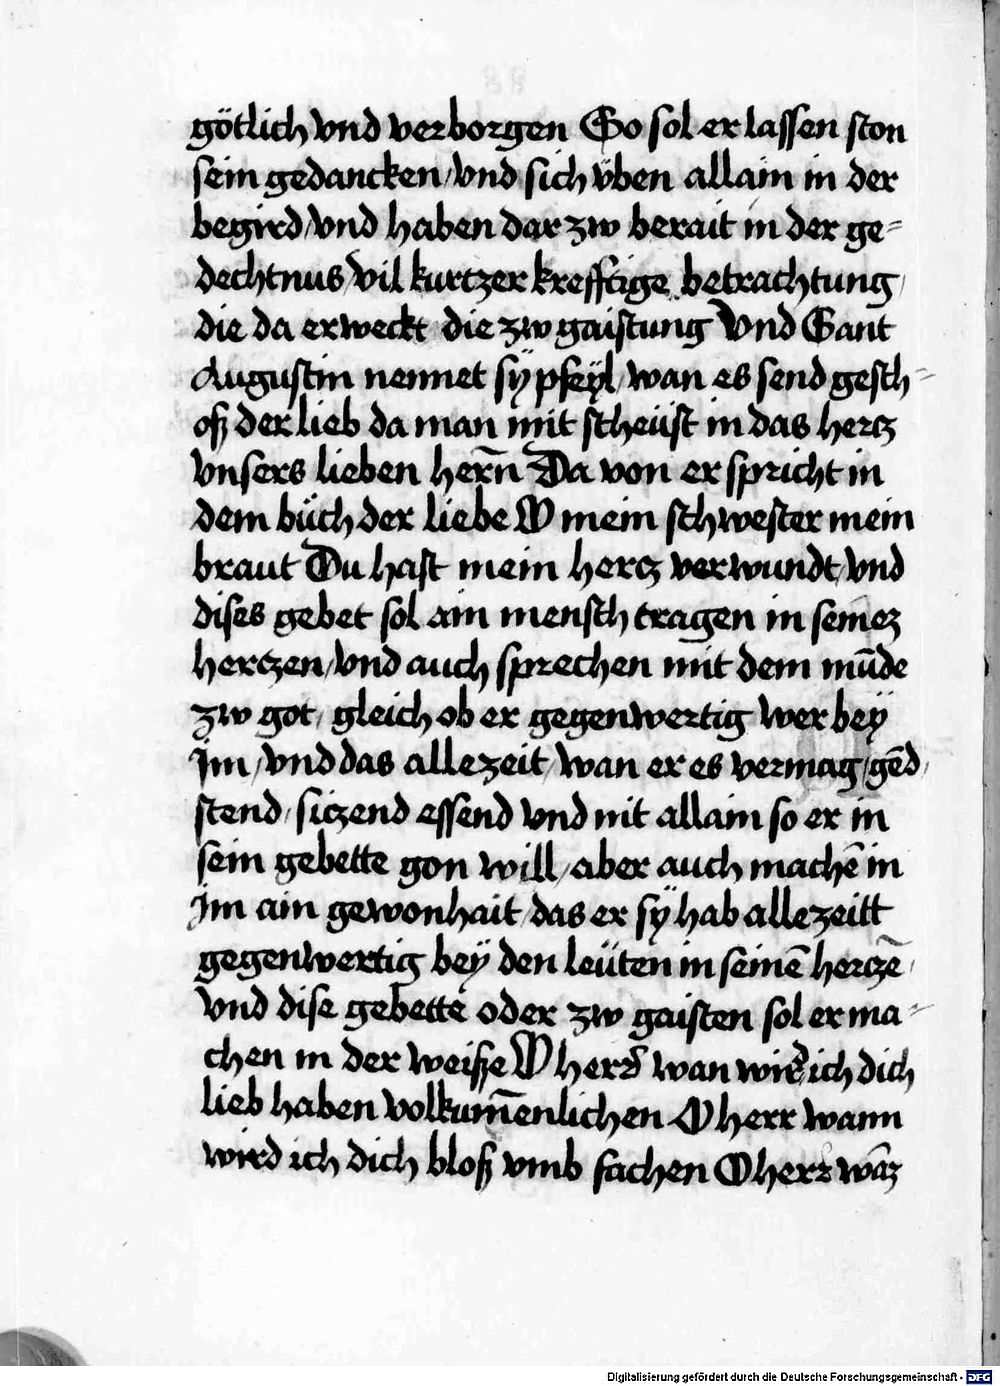 götlich vnd verborgen So sol er lassen ston
sein gedancken / vnd sich vͤben allain in der
begird / vnd haben dar zw berait in der ge=
dechtnus / vil kurtzer krefftige betrachtung /
die da erweckt die zw gaistung Vnd Sant
Augustin nennet sÿ pfeÿl / wan es send gesch=
oß der lieb da man mit scheüst in das hertz
vnsers lieben herñ Da von er spricht in
dem büch der liebe O mein schwester mein
braut Du hast mein hertz verwundt / vnd
dises gebet sol ain mensch tragen in seinez
hertzen / vnd auch sprechen mit dem mūde
zw got / gleich ob er gegenwertig wer beÿ
Jm / vnd das allezeit / wan er es vermag / gēd /
stend / sitzend essend vnd nit allain so er in
sein gebette gon will / aber auch machē in
Jm ain gewonhait / das er sÿ hab allezeitt
gegenwertig beÿ den leüten in seinē hertzē /
vnd dise gebette oder zw gaisten sol er ma=
chen in der weiße O herr wan wird ich dich
lieb haben volkum̄enlichen O herr wann
wird ich dich bloß vmb fachen O herr wāz